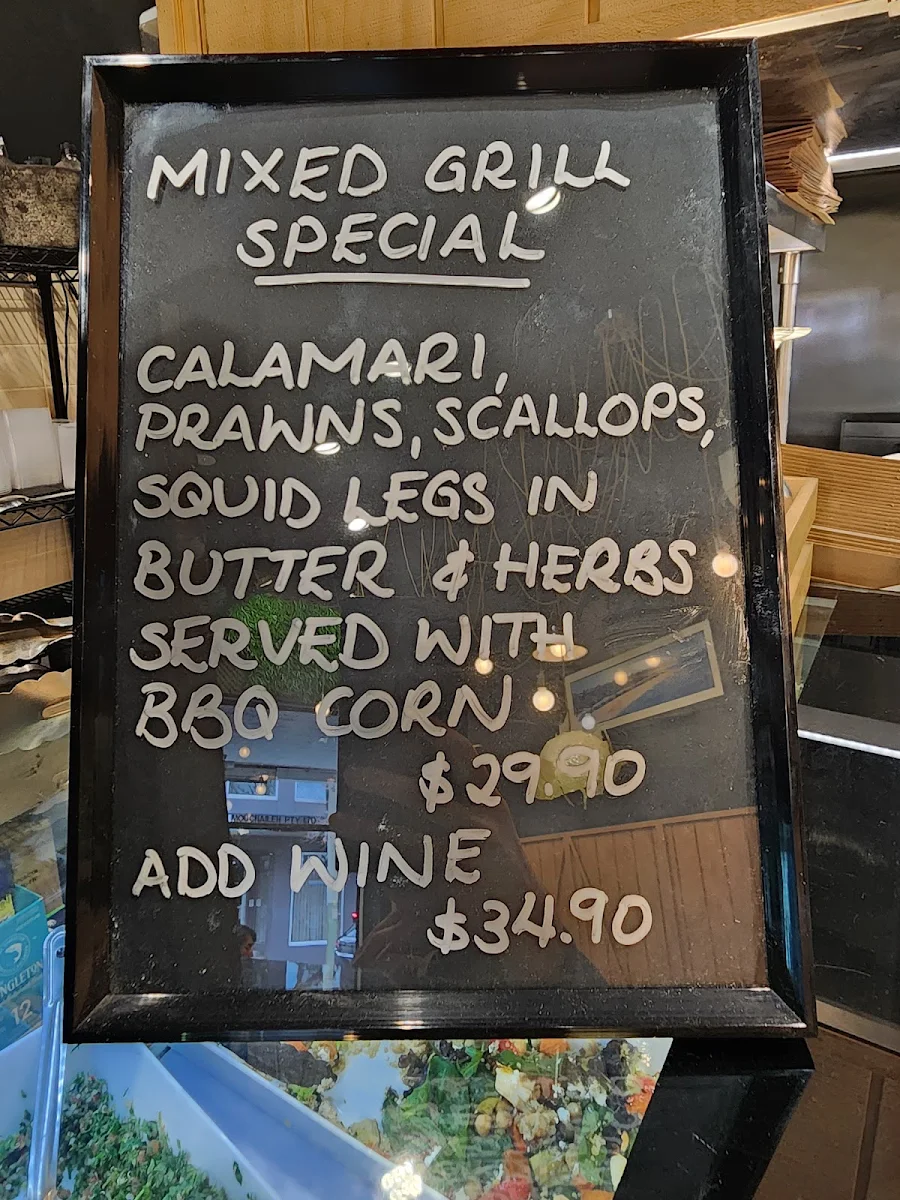 MIXED GRILL
SPECIAL
CALAMARI,
PRAWNS, SCALLOPS,
SQUID LEGS IN
BUTTER & HERBS
SERVED WITH
BBQ CORN
$29.90
ADD WINE
$34.90
NGLETON
12